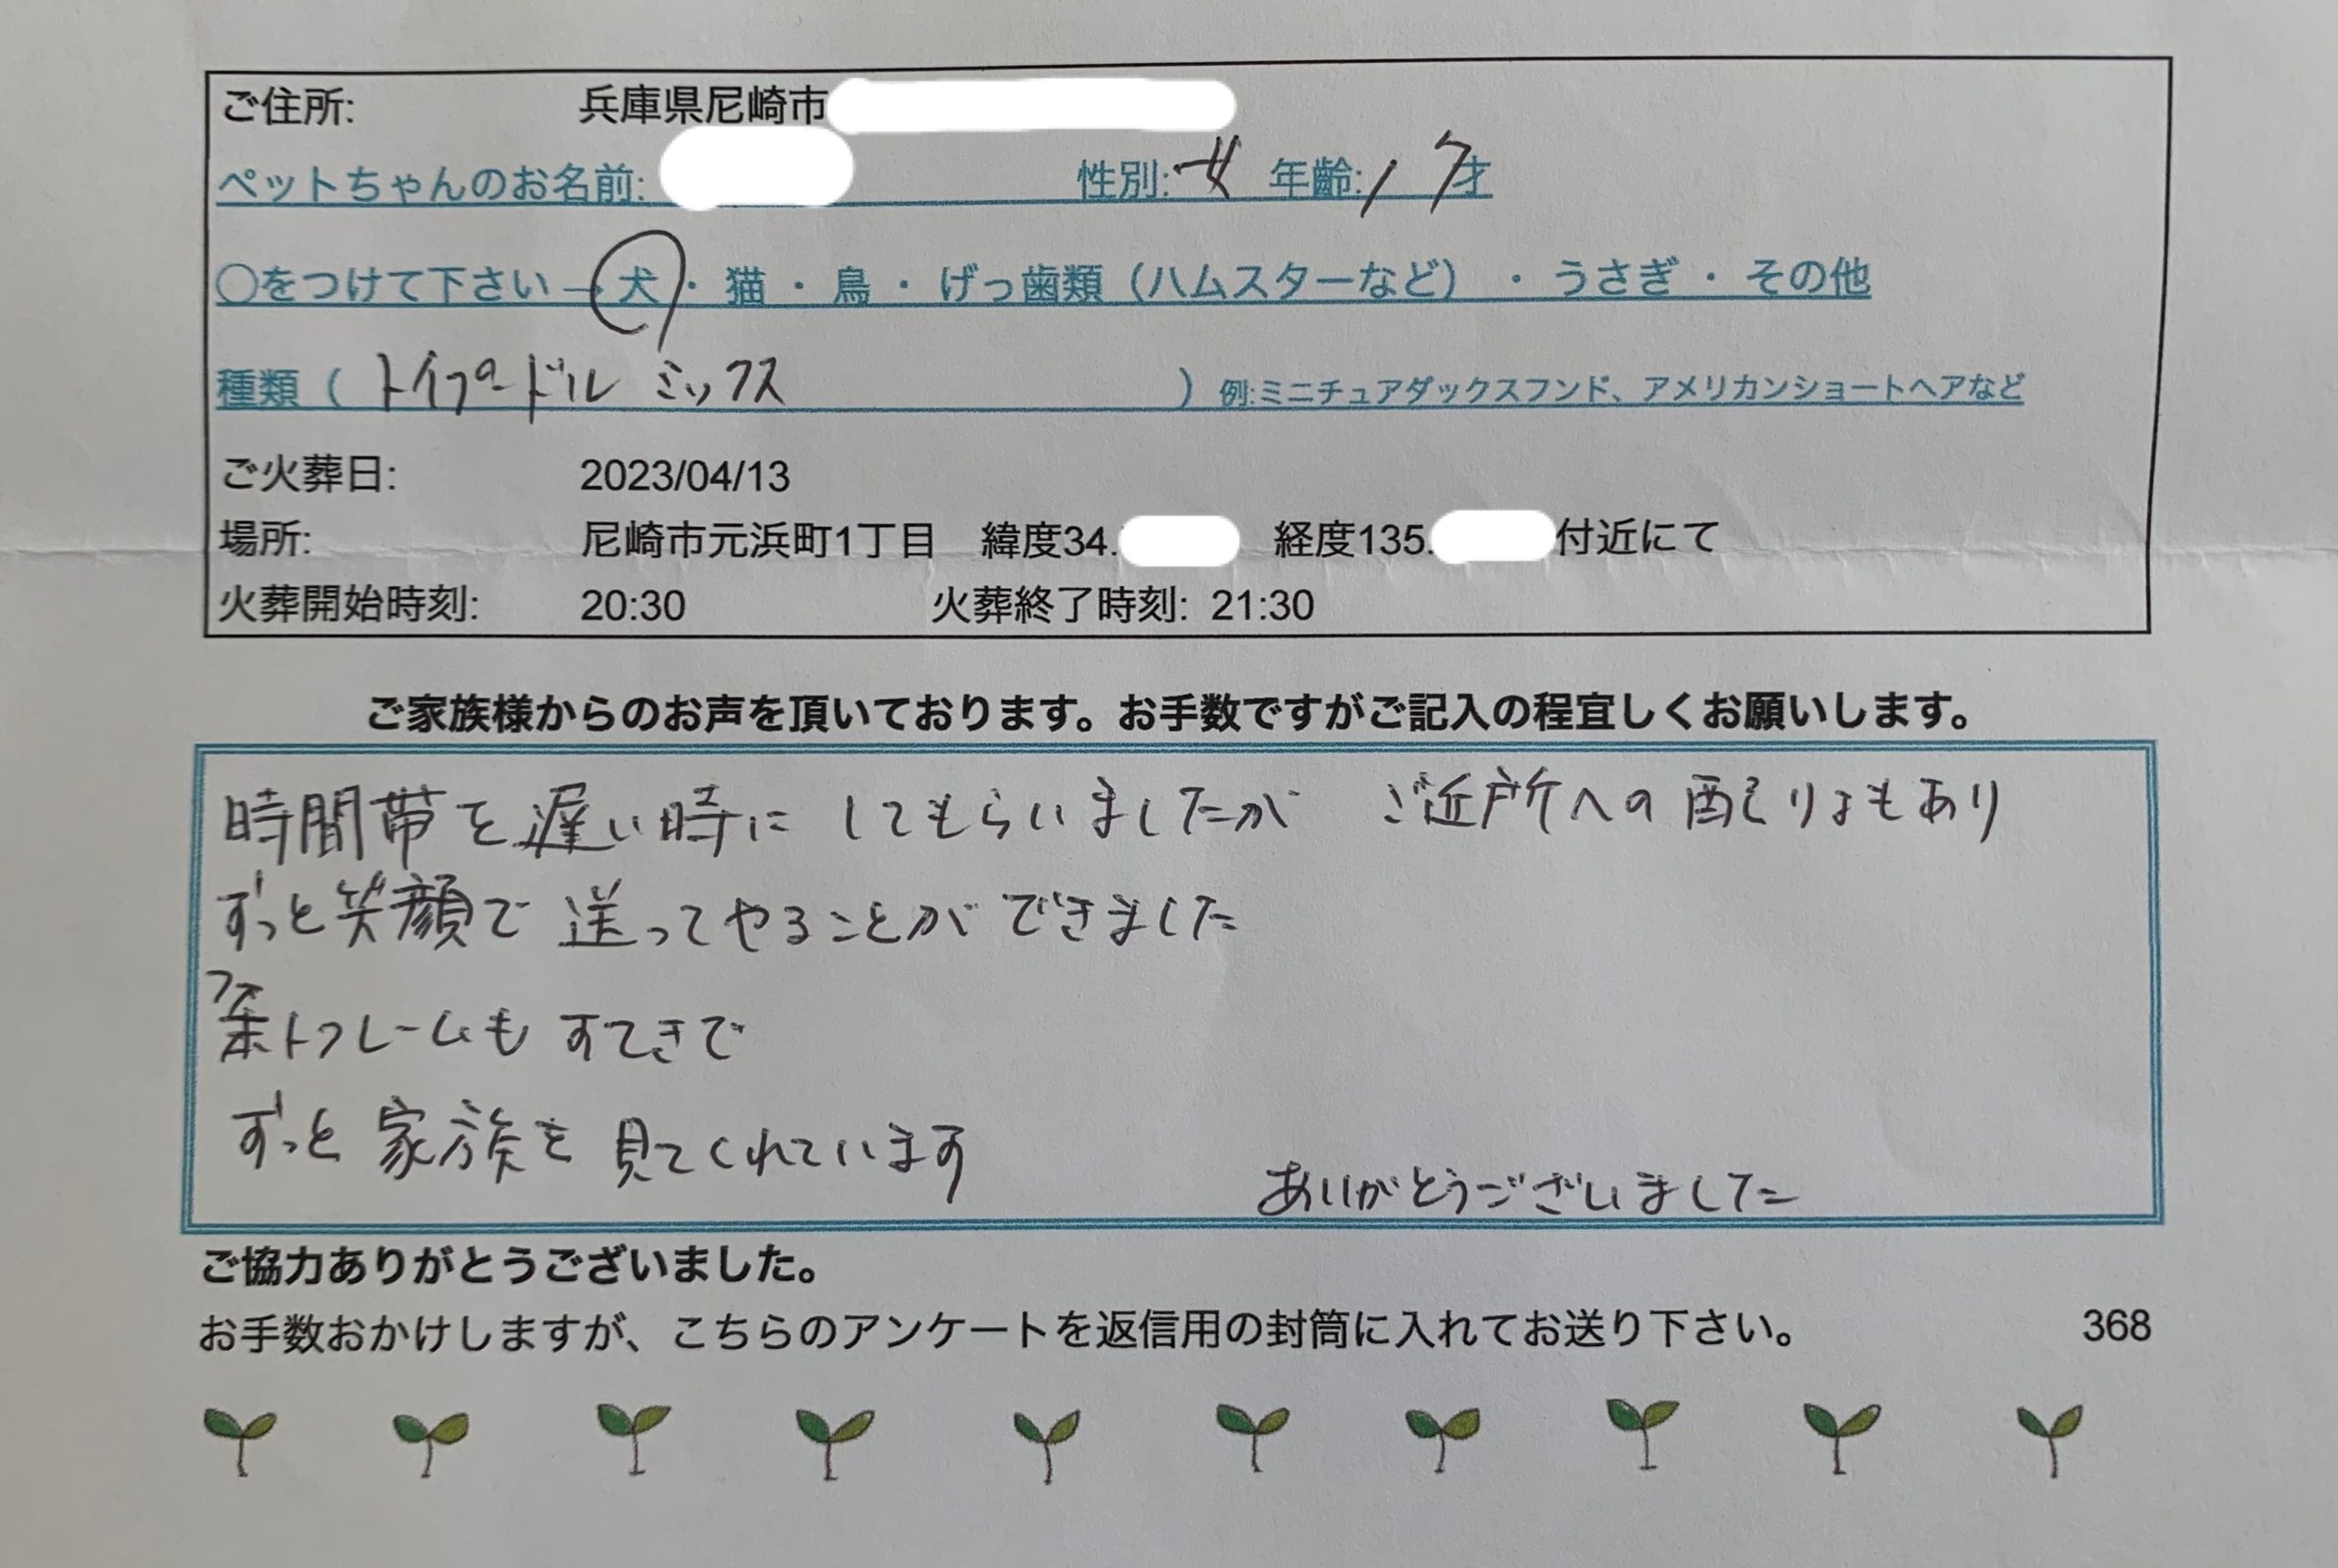 ご住所: 兵庫県尼崎市
ペットちゃんのお名前: 性別: 女 年齢: 17才
○をつけて下さい→犬・猫・鳥・げっ歯類（ハムスターなど）・うさぎ・その他
種類（トイプードル ミックス）例:ミニチュアダックスフンド、アメリカンショートヘアなど
ご火葬日: 2023/04/13
場所: 尼崎市元浜町1丁目 緯度34. 経度135. 付近にて
火葬開始時刻: 20:30 火葬終了時刻: 21:30
ご家族様からのお声を頂いております。お手数ですがご記入の程宜しくお願いします。
時間帯を遅い時にしてもらいましたが ご近所への配りょもあり
ずっと笑顔で送ってやることができました
フォトフレームもすてきで
ずっと家族を見てくれています
ありがとうございました
ご協力ありがとうございました。
お手数おかけしますが、こちらのアンケートを返信用の封筒に入れてお送り下さい。 368